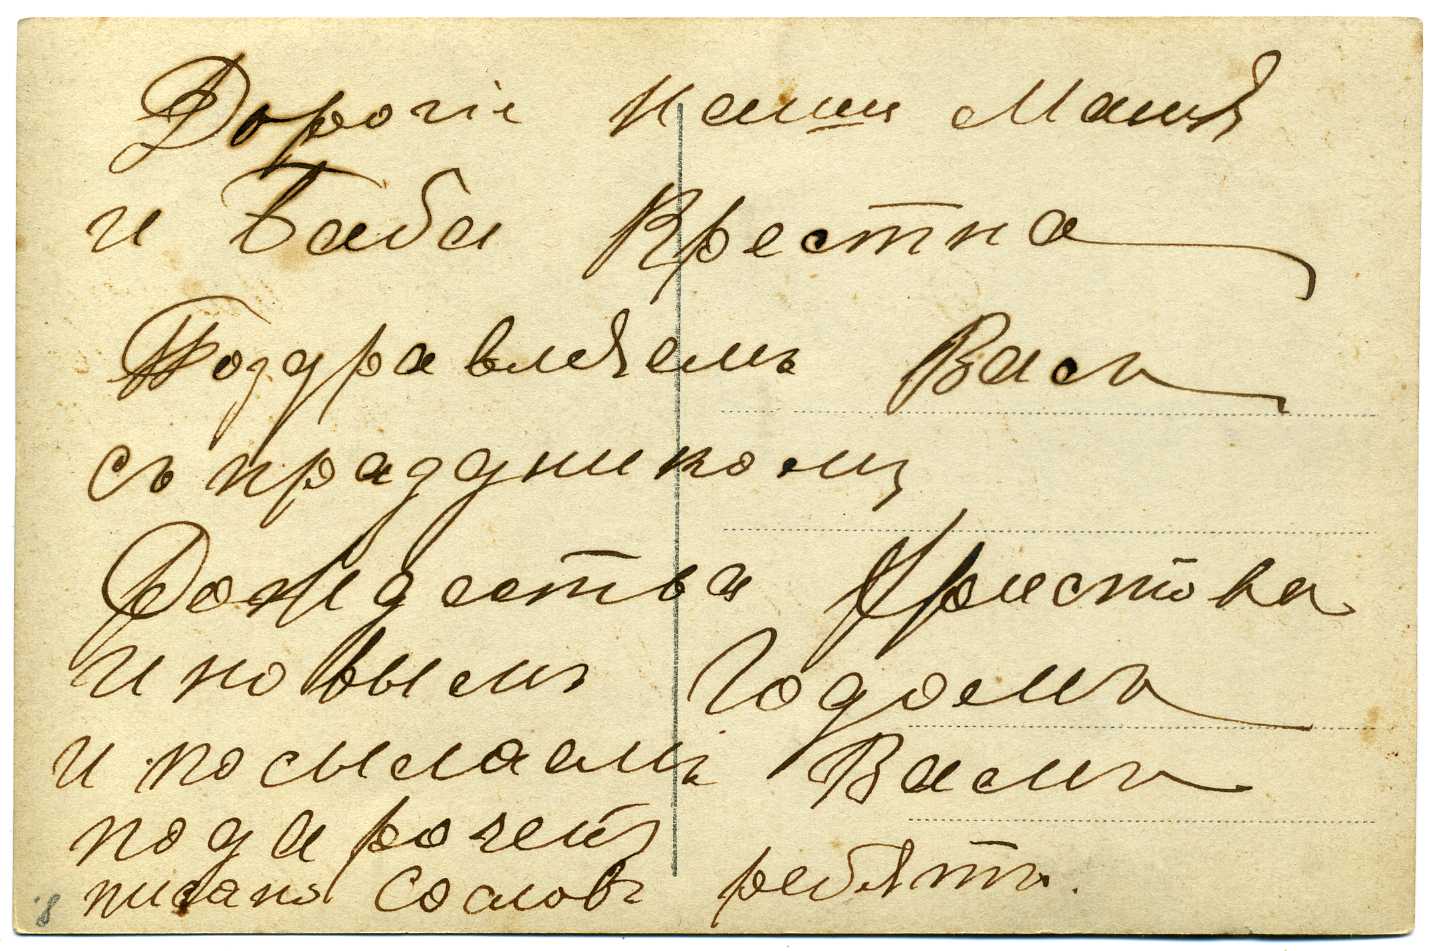 Дорогiе наши Маня
и Баба Крестна
Поздравляемъ Васъ
съ праздникомъ
Рождества Христова
и новымъ Годомъ
и посылаемъ Вамъ
подарочекъ
писано со словъ ребятъ.
8